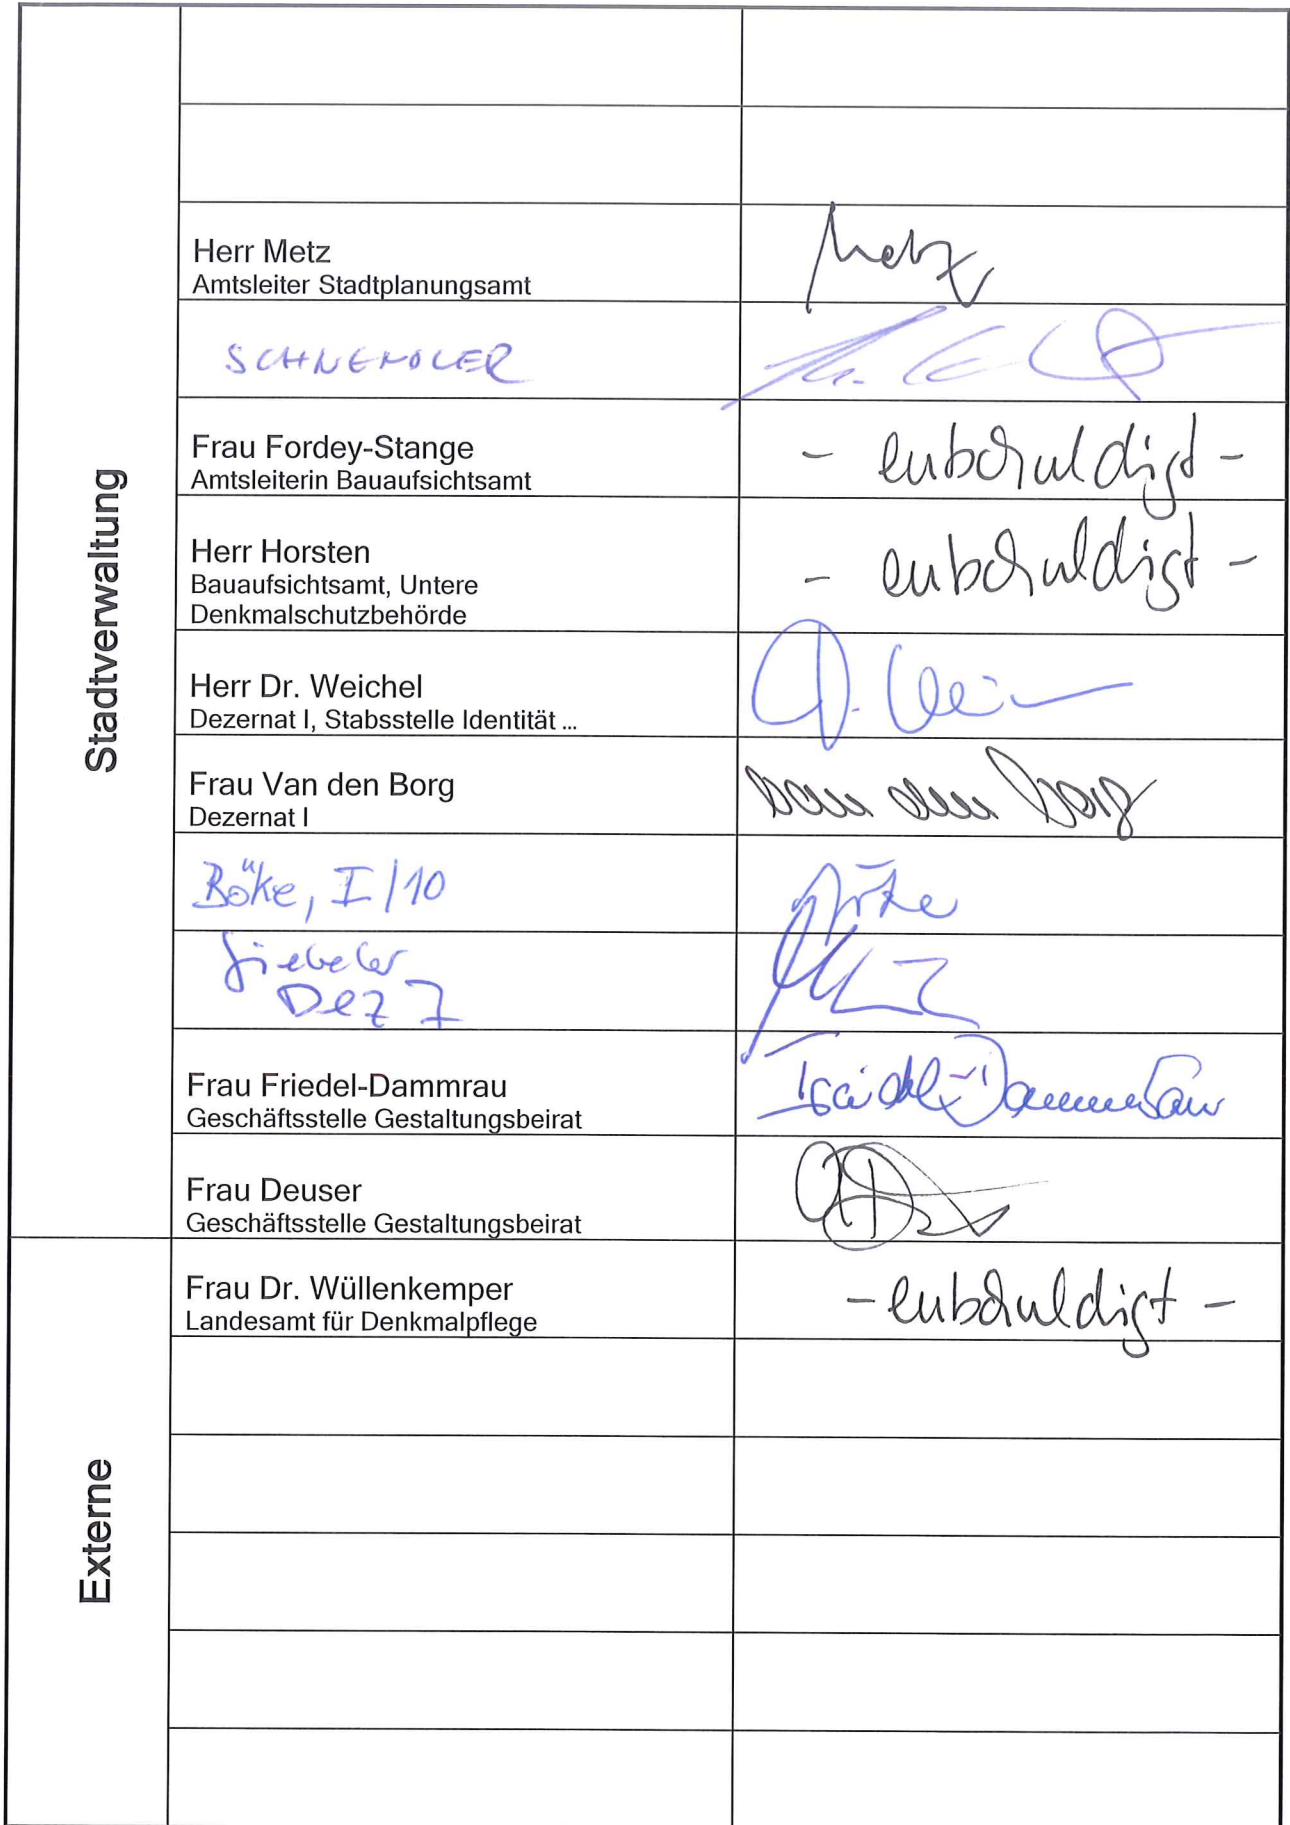 Stadtverwaltung
Herr Metz
Amtsleiter Stadtplanungsamt
Metz
Frau Fordey-Stange
Amtsleiterin Bauaufsichtsamt
- entschuldigt -
Herr Horsten
Bauaufsichtsamt, Untere
Denkmalschutzbehörde
- entschuldigt -
Herr Dr. Weichel
Dezernat I, Stabsstelle Identität ...
Frau Van den Borg
Dezernat I
van den Borg
Böke, I/10
Böke
Dez 7
Frau Friedel-Dammrau
Geschäftsstelle Gestaltungsbeirat
Friedel-Dammrau
Frau Deuser
Geschäftsstelle Gestaltungsbeirat
Externe
Frau Dr. Wüllenkemper
Landesamt für Denkmalpflege
- entschuldigt -